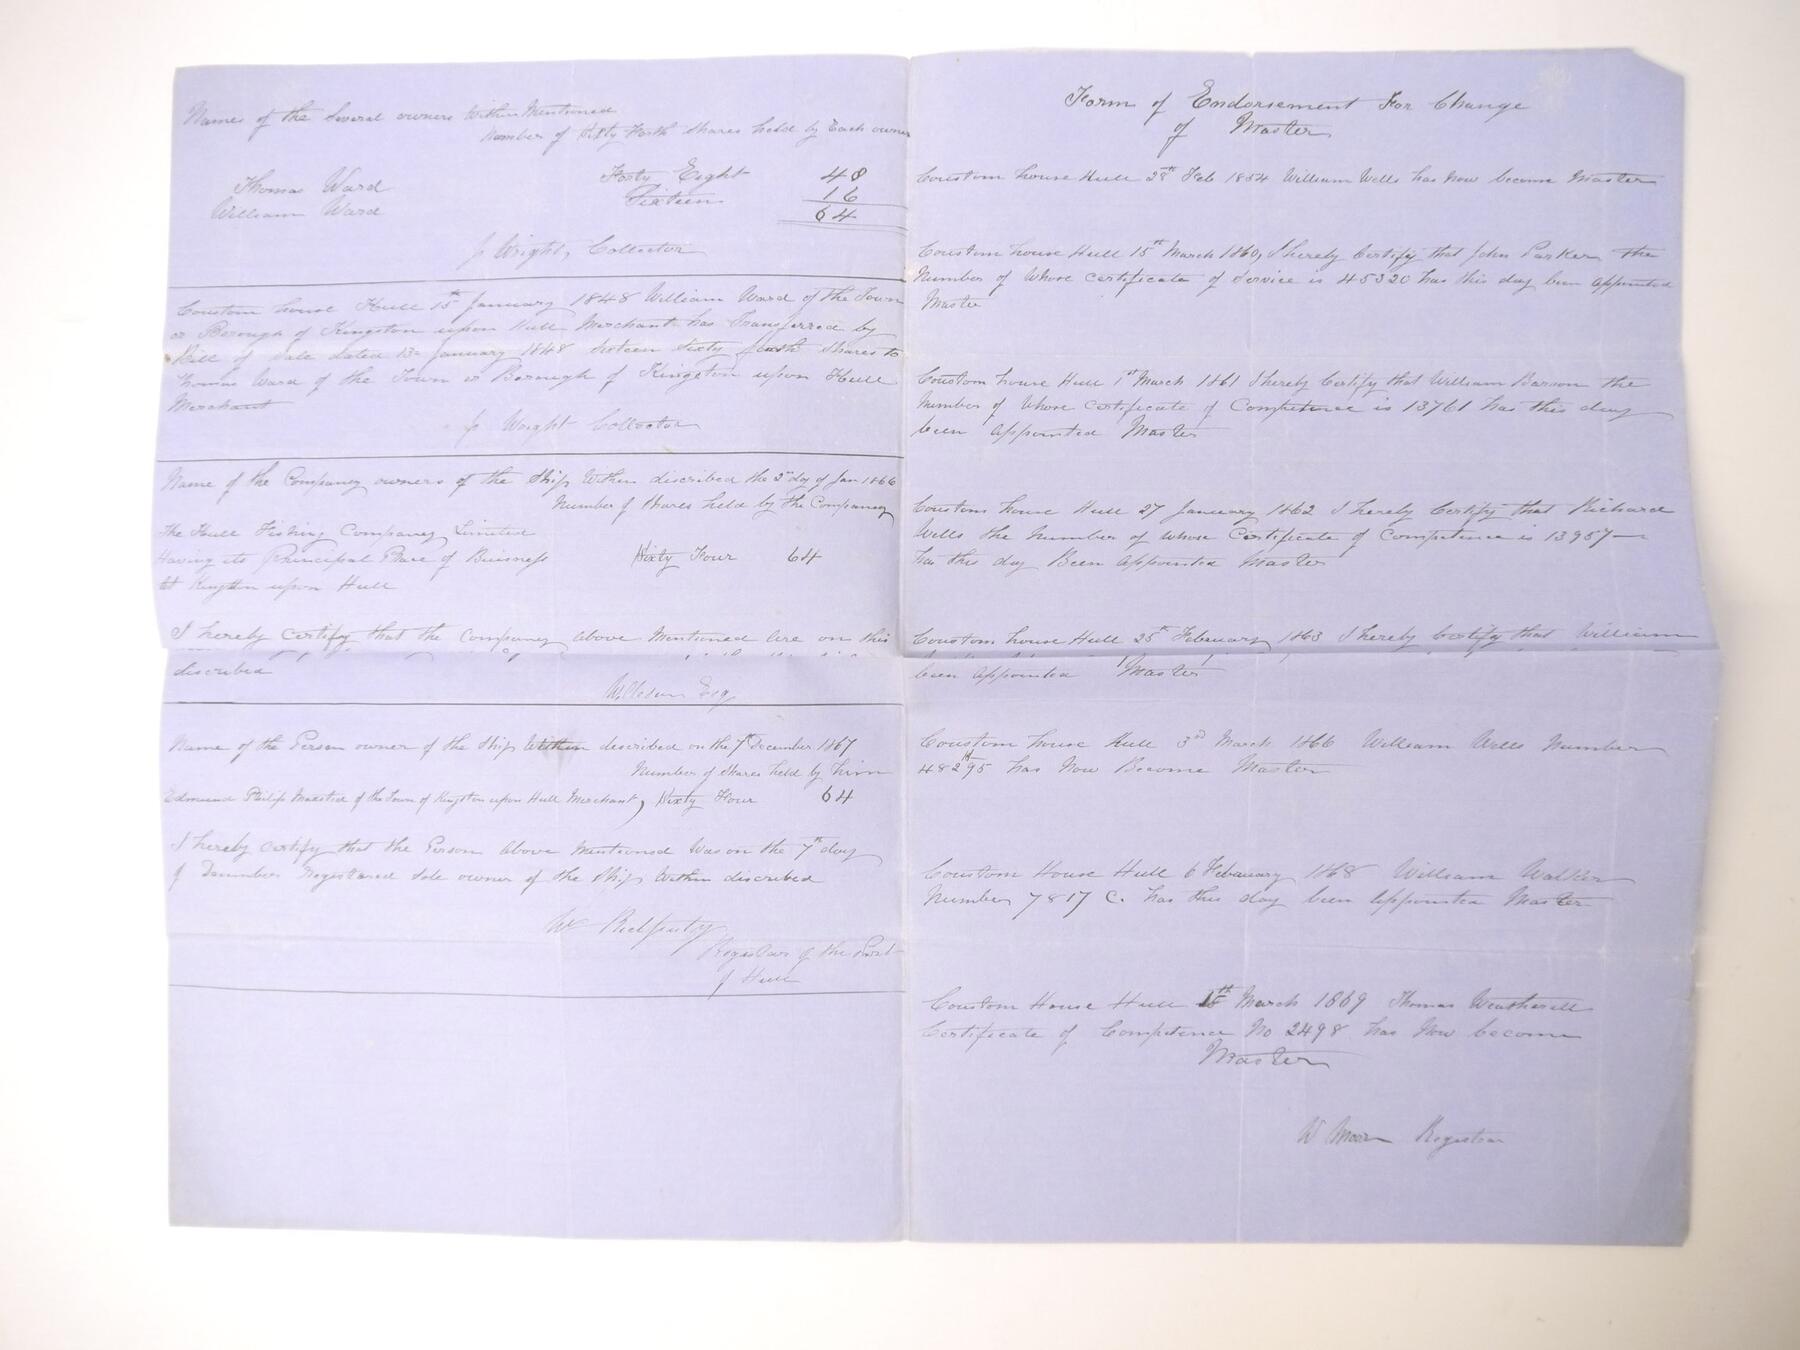 Names of the Several owners Within Mentioned
Number of Sixty Forth Shares held by Each owner
Thomas Ward Forty Eight 48
William Ward Sixteen 16
64
Wright, Collector
Coustom house Hull 15th January 1848 William Ward of the Town
or Borough of Kingston upon Hull Merchant has Transferred by
Bill of Sale dated 13th January 1848 Sixteen Sixty forth Shares to
Thomas Ward of the Town or Borough of Kingston upon Hull
Merchant
Wright Collector
Name of the Company owners of the Ship Within discribed the 2nd day of Jan 1866
Number of Shares held by the Company
The Hull Fishing Company Limited
Having its Principal Place of Buisness Sixty Four 64
at Kingston upon Hull
I hereby certify that the Company above Mentioned are on this
discribed
Esq
Name of the Person owner of the Ship Within discribed on the 7th December 1867
Number of Shares held by him
Edmund Philip of the Town of Kingston upon Hull Merchant, Sixty Four 64
I hereby certify that the Person above Mentioned Was on the 7th day
of December Registered Sole owner of the Ship Within discribed
W
Registrar of the Port
of Hull
Form of Endorsement For Change
of Master
Coustom house Hull 28th Feb 1854 William Wells has Now become Master
Coustom house Hull 15th March 1860, I hereby Certify that John Parker the
Number of Whose certificate of Service is 45320 has this day been appointed
Master
Coustom house Hull 1st March 1861 I hereby Certify that William Barson the
Number of Whose certificate of Competence is 13761 has this day
been appointed Master
Coustom house Hull 27 January 1862 I hereby Certify that Richard
Wells the Number of whose Certificate of Competence is 13957
has this day Been appointed Master
Coustom house Hull 25th February 1863 I hereby Certify that William
been appointed Master
Coustom house Hull 3rd March 1866 William Wells Number
48295 has Now Become Master
Coustom House Hull 6 February 1868 William Walker
Number 7817 C. has this day been appointed Master
Coustom House Hull 15th March 1869 Thomas Weatherill
Certificate of Competence No 2498 has Now become
Master
W Moon Registrar